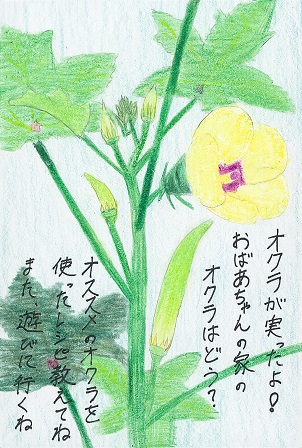 オクラが実ったよ!
おばあちゃんの家の
オクラはどう?
オススメのオクラを
使ったレシピ教えてね
また、遊びに行くね